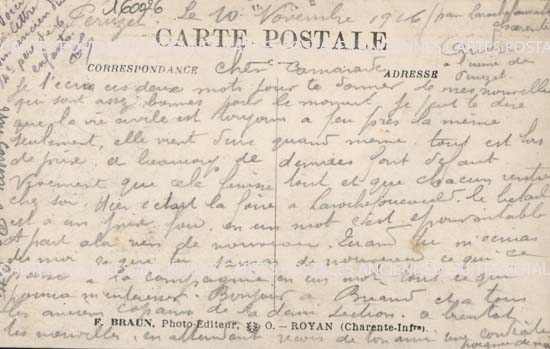 160926
Peruzet Le 10 Novembre 1916 / par Larochefoucauld
Charente
CARTE POSTALE
CORRESPONDANCE
ADRESSE
Cher Camarade
à l'usine de
Peruzet
Je t'écris ces deux mots pour te donner de mes nouvelles
qui sont assez bonnes pour le moment. Je peut te dire
que la vie civile est toujours a peu près la même
seulement, elle vient dure quand même tout est hors
de prix, et beaucoup de denrées font défaut
Vivement que cela finisse tout et que chacun rentre
chez soi. Hier c'était la foire à Larochefoucauld. le bétail
est a un prix fou. en un mot c'est épouvantable
A part ala rien de nouveau. Quand tu m'écriras
dis moi ce que tu sauras de nouveau ce qui ce
passe a la compagnie en un mot tous ce qui
pourra m'intéresser. Bonjour à Briand et a tous
les anciens copains de la demi section. a bientôt
tes nouvelles, en attendant reçois de ton ami une cordiale
poignée de main
F. BRAUN, Photo-Editeur, O. — ROYAN (Charente-Infre).